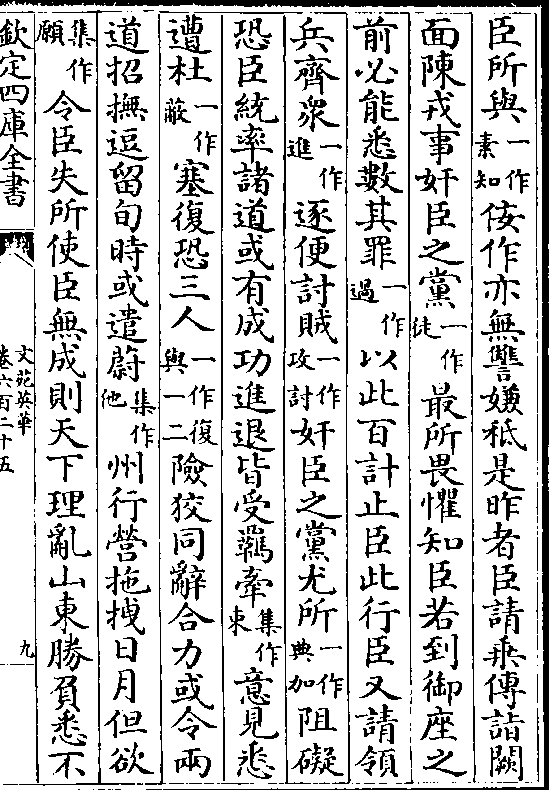 臣所與一作素知佞作亦無讐嫌秪是昨者臣請乗傳詣闕
面陳戎事奸臣之黨一作徒最所畏懼知臣若到御座之
前必能悉數其罪一作過以此百計止臣此行臣又請領
兵齊衆一作進逐便討賊一作攻討奸臣之黨尤所一作典加阻礙
恐臣統率諸道或有成功進退皆受羈牽集作束意見悉
遭杜一作蔽塞復恐三人一作復與一二險狡同辭合力或令兩
道招撫逗留旬時或遣蔚集作他州行營拖拽日月但欲
集作願令臣失所使臣無成則天下理亂山東勝負悉不
欽定四庫全書
文苑英華
卷六百二十五
九